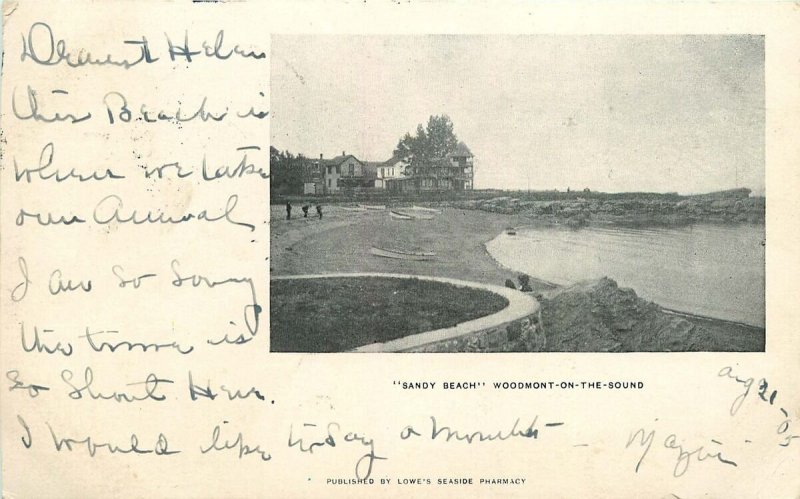 Dearest Helen
this Beach is
where we take
our Annual
I am so Sorry
the time is
So Short Here.
I would like to Say a month -
"SANDY BEACH" WOODMONT-ON-THE-SOUND
Aug 21 - 05
PUBLISHED BY LOWE'S SEASIDE PHARMACY